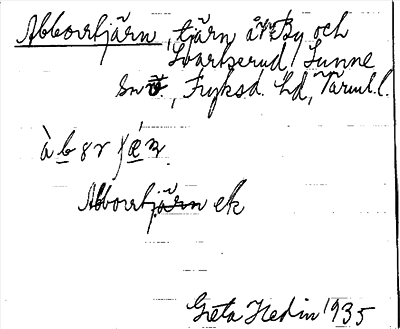 Abborrtjärn, tjärn å By och
Svartserud, Sunne
sn, Fryksd. hd, Värml. l.
àbɛrʃǽn
Abborrtjärn ek
Greta Hedin 1935